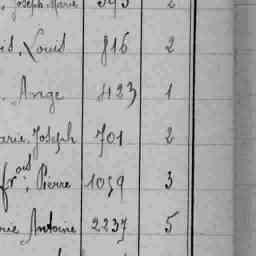 Joseph Marie 595 2
Louis 816 2
Ange 423 1
arie Joseph 701 2
frois, Pierre 1059 3
rie Antoine 2237 5